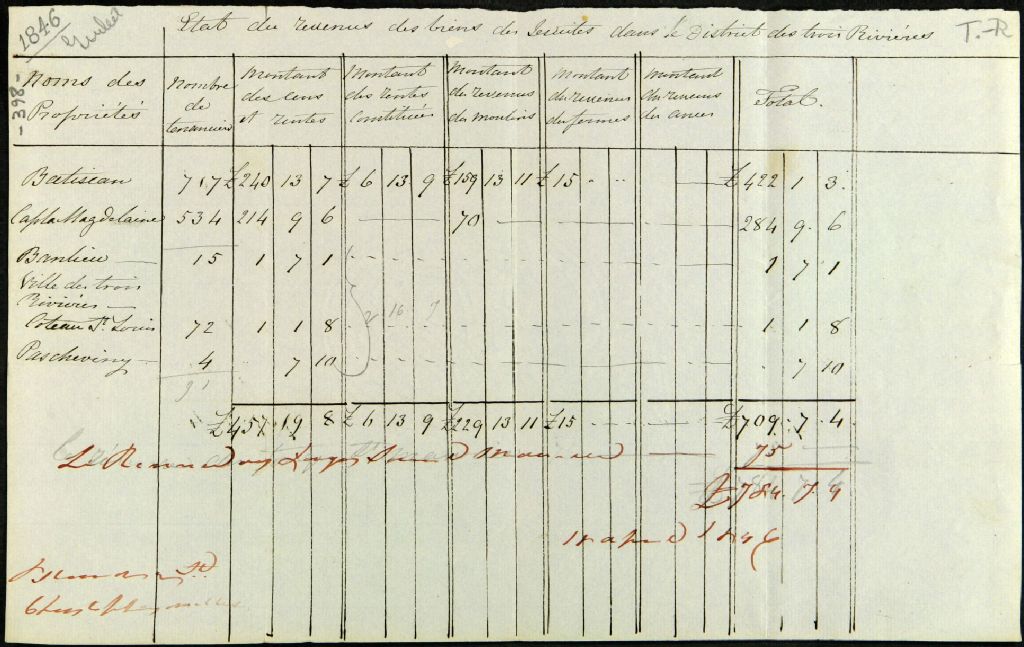 1846
Etat du revenus des biens des Jesuites dans le District des trois Rivières
T.-R
- 398 -
Noms des Propriétés | Nombre de tenanciers | Montant des cens et rentes | Montant des rentes constituées | Montant du revenus des moulins | Montant du revenus des fermes | Montant du revenus des ances | Total.
Batiscan 717 £240 13 7 £6 13 9 £159 13 11 £15 £422 1 3
Cap la Magdelaine 534 214 9 6 70 284 9 6
Banlieu 15 1 7 1 1 7 1
Ville des trois
Rivières
2 16 7
Coteau St. Louis 72 1 1 8 1 1 8
Pascheviny 4 7 10 7 10
91
£457 19 8 £6 13 9 £229 13 11 £15 £709 7 4
75
£784 7 4
1846